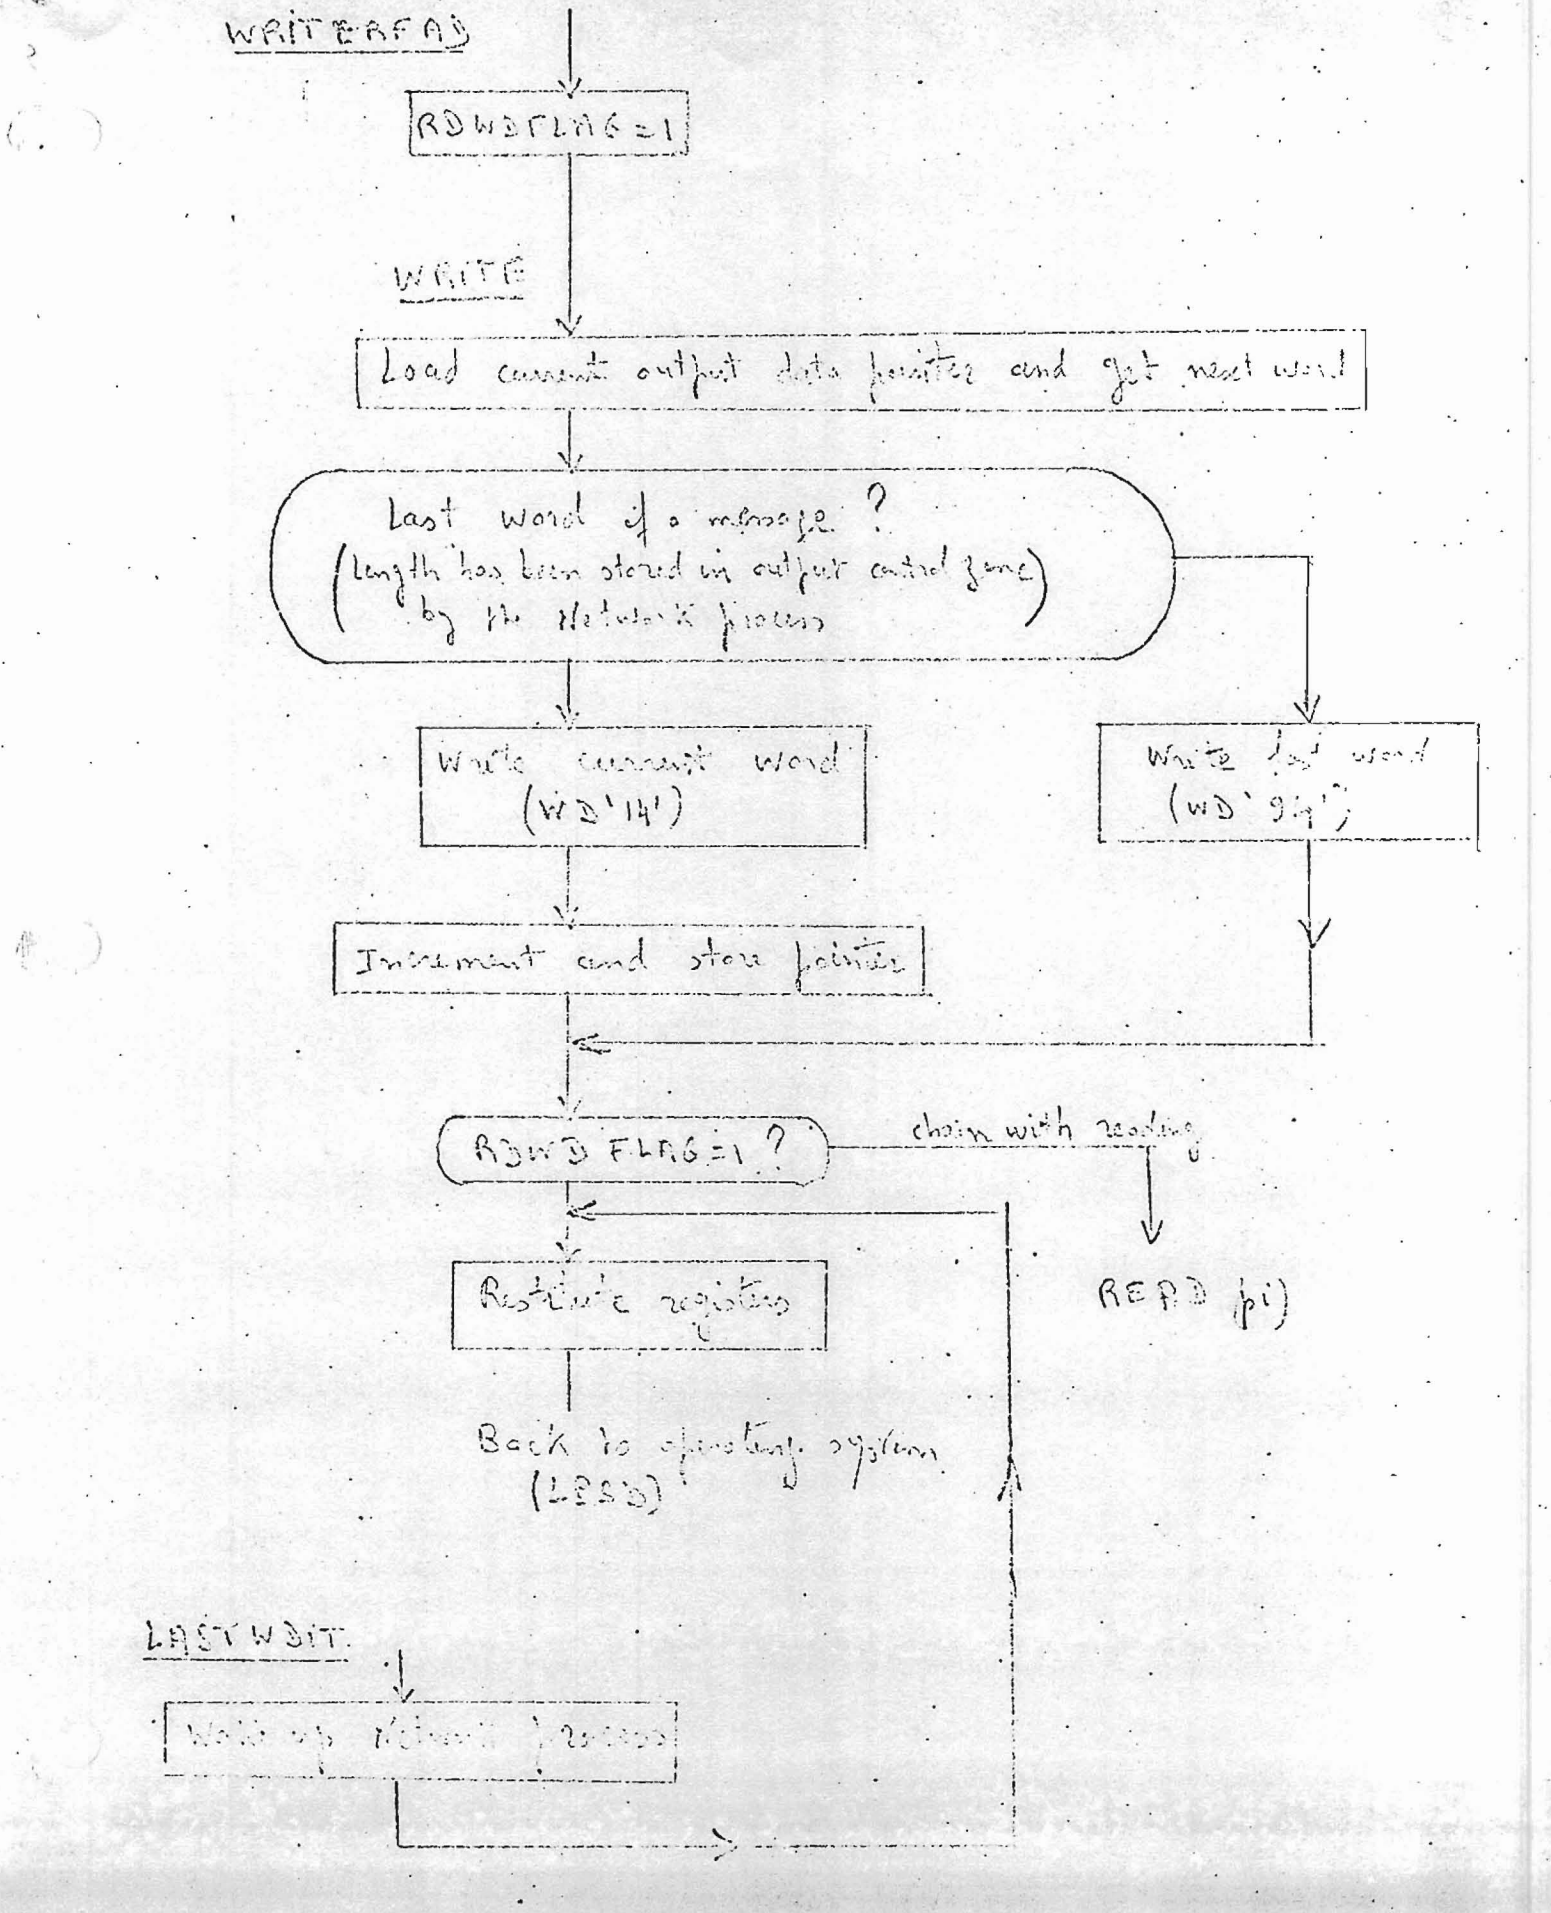 WRITEREAD
RDWDFLAG=1
WRITE
Load current output data pointer and get next word
Last word of a message ?
(Length has been stored in output control zone)
by the Network process
Write current word
(WD'14')
Write last word
(WD'94')
Increment and store pointer
RDWD FLAG=1 ?
chain with reading
Restitute registers
READ
Back to operating system
(LPSD)
LASTWDIT
Wake up Network process